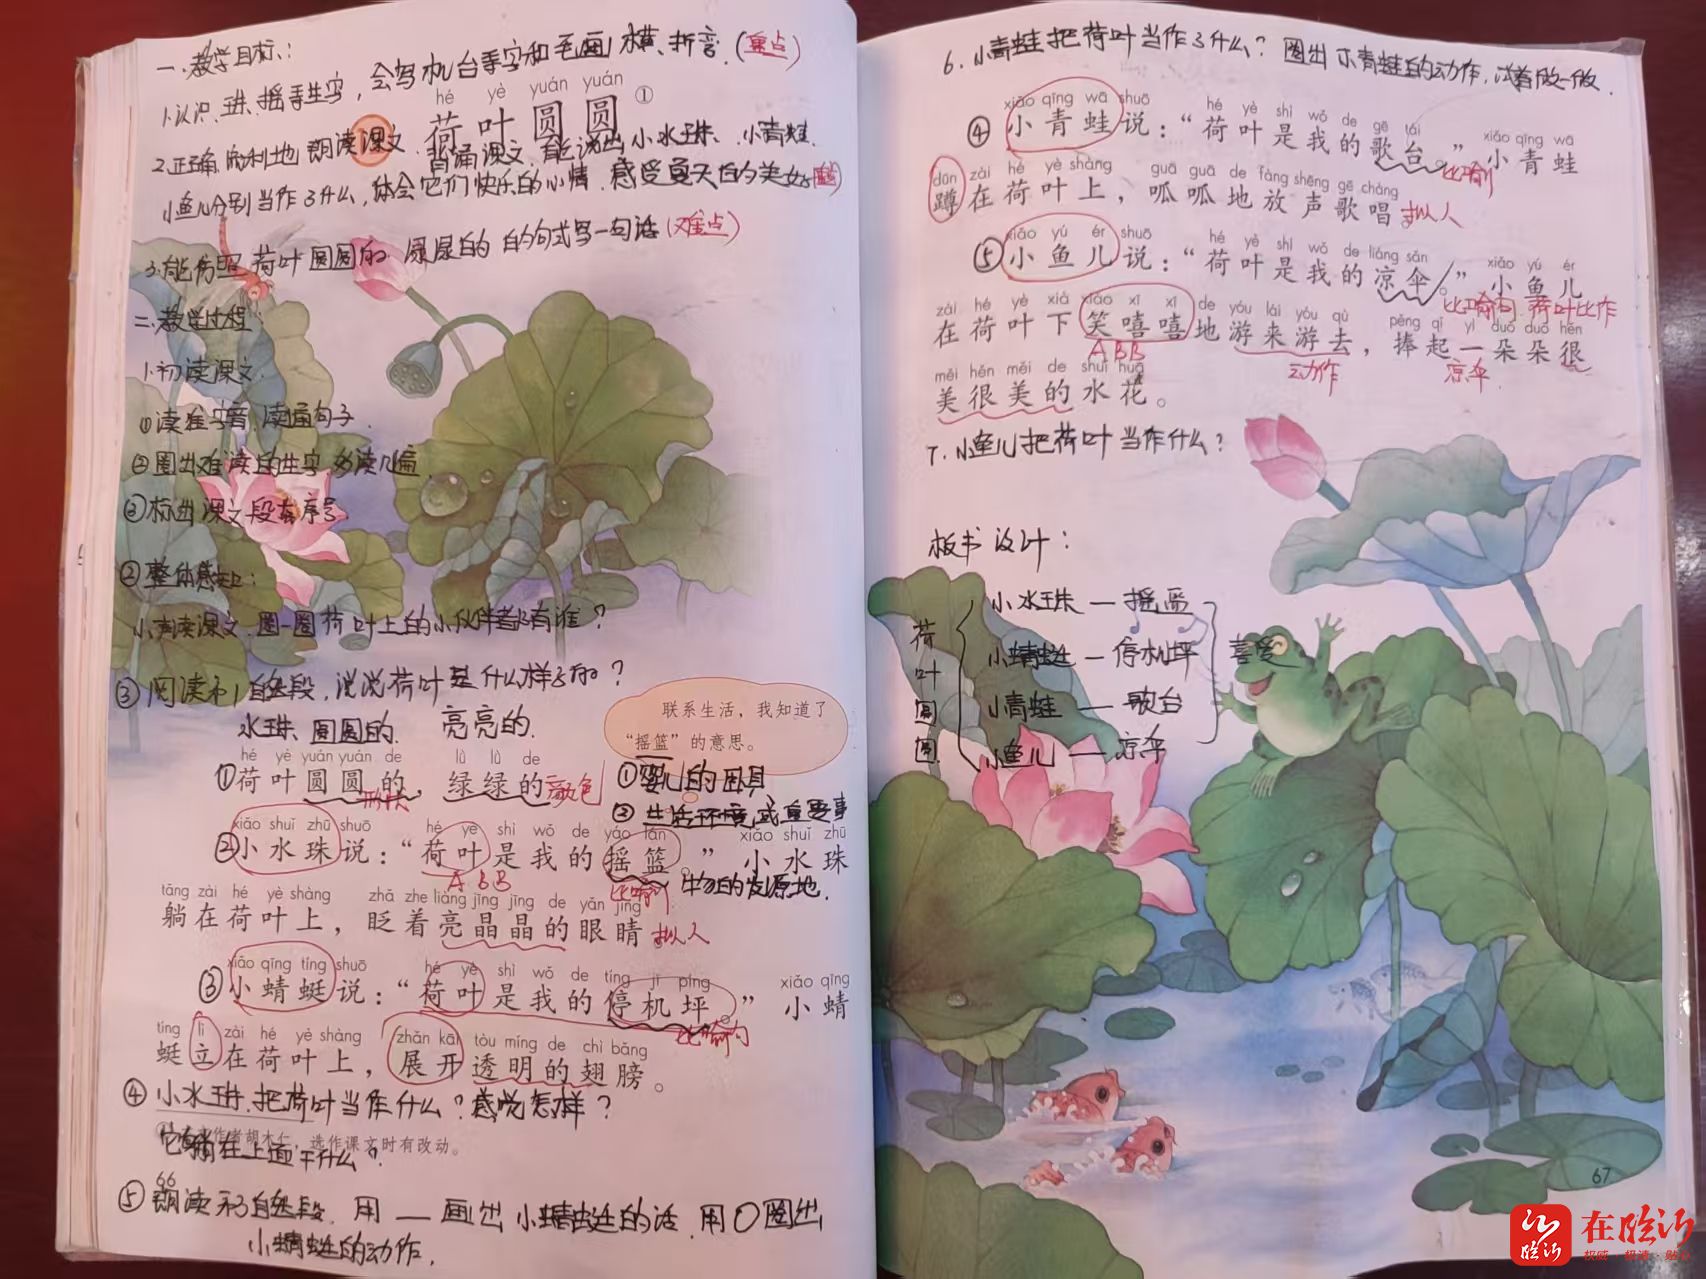 一、教学目标:
1.认识、珠、摇等生字，会写机台等字和笔画横、折弯.(重点)
hé yè yuán yuán
荷叶圆圆①
2.正确、流利地 朗读课文、背诵课文、能说出小水珠、小青蛙、
小鱼儿分别当作了什么，体会它们快乐的心情.感受夏天的美好
3.能仿照荷叶圆圆的、绿绿的 的句式写一句话(难点)
二、教学过程
1.初读课文.
①读准字音,读通句子.
②圈出难读的生字,多读几遍
③标出课文段落序号
②整体感知:
小声读课文.圈一圈荷叶上的小伙伴都有谁?
③阅读第1自然段,说说荷叶是什么样子的?
水珠、圆圆的、 亮亮的.
联系生活，我知道了
“摇篮”的意思。
①婴儿的卧具
②生活环境,或重要事
物的发源地.
hé yè yuán yuán de lǜ lǜ de
①荷叶圆圆的，绿绿的 形状 颜色
xiǎo shuǐ zhū shuō hé yè shì wǒ de yáo lán xiǎo shuǐ zhū
②小水珠说：“荷叶是我的摇篮。”小水珠
ABB 比喻
tǎng zài hé yè shàng zhǎ zhe liàng jīng jīng de yǎn jīng
躺在荷叶上，眨着亮晶晶的眼睛 拟人
xiǎo qīng tíng shuō hé yè shì wǒ de tíng jī píng xiǎo qīng
③小蜻蜓说：“荷叶是我的停机坪。”小蜻
比喻句
tíng lì zài hé yè shàng zhǎn kāi tòu míng de chì bǎng
蜓立在荷叶上，展开透明的翅膀。
④小水珠.把荷叶当作什么?感觉怎样?
作者胡木仁，选作课文时有改动。
它躺在上面干什么?
66
⑤朗读第3自然段.用 — 画出小蜻蜓的话.用○圈出
小蜻蜓的动作.
6.小青蛙把荷叶当作了什么?圈出小青蛙的动作.试着做一做.
xiǎo qīng wā shuō hé yè shì wǒ de gē tái xiǎo qīng wā
④小青蛙说：“荷叶是我的歌台。”小青蛙
比喻
dūn zài hé yè shàng guā guā de fàng shēng gē chàng
蹲在荷叶上，呱呱地放声歌唱 拟人
xiǎo yú ér shuō hé yè shì wǒ de liáng sǎn xiǎo yú ér
⑤小鱼儿说：“荷叶是我的凉伞。”小鱼儿
比喻句 荷叶比作
zài hé yè xià xiào xī xī de yóu lái yóu qù pěng qǐ yì duǒ duǒ hěn
在荷叶下笑嘻嘻地游来游去，捧起一朵朵很
ABB 动作 凉伞.
měi hěn měi de shuǐ huā
美很美的水花。
7.小鱼儿把荷叶当作什么?
板书设计:
荷叶圆圆
小水珠—摇篮
小蜻蜓—停机坪
小青蛙—歌台
小鱼儿—凉伞
喜爱
67
临沂
在临沂